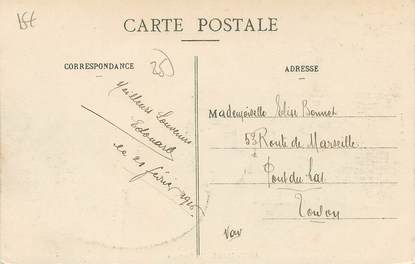 CARTE POSTALE
CORRESPONDANCE
ADRESSE
Meilleurs Souvenirs
Edouard
le 21 février 1916
Mademoiselle Elise Bonnet
53 Route de Marseille
Pont du Las
Toulon
Var